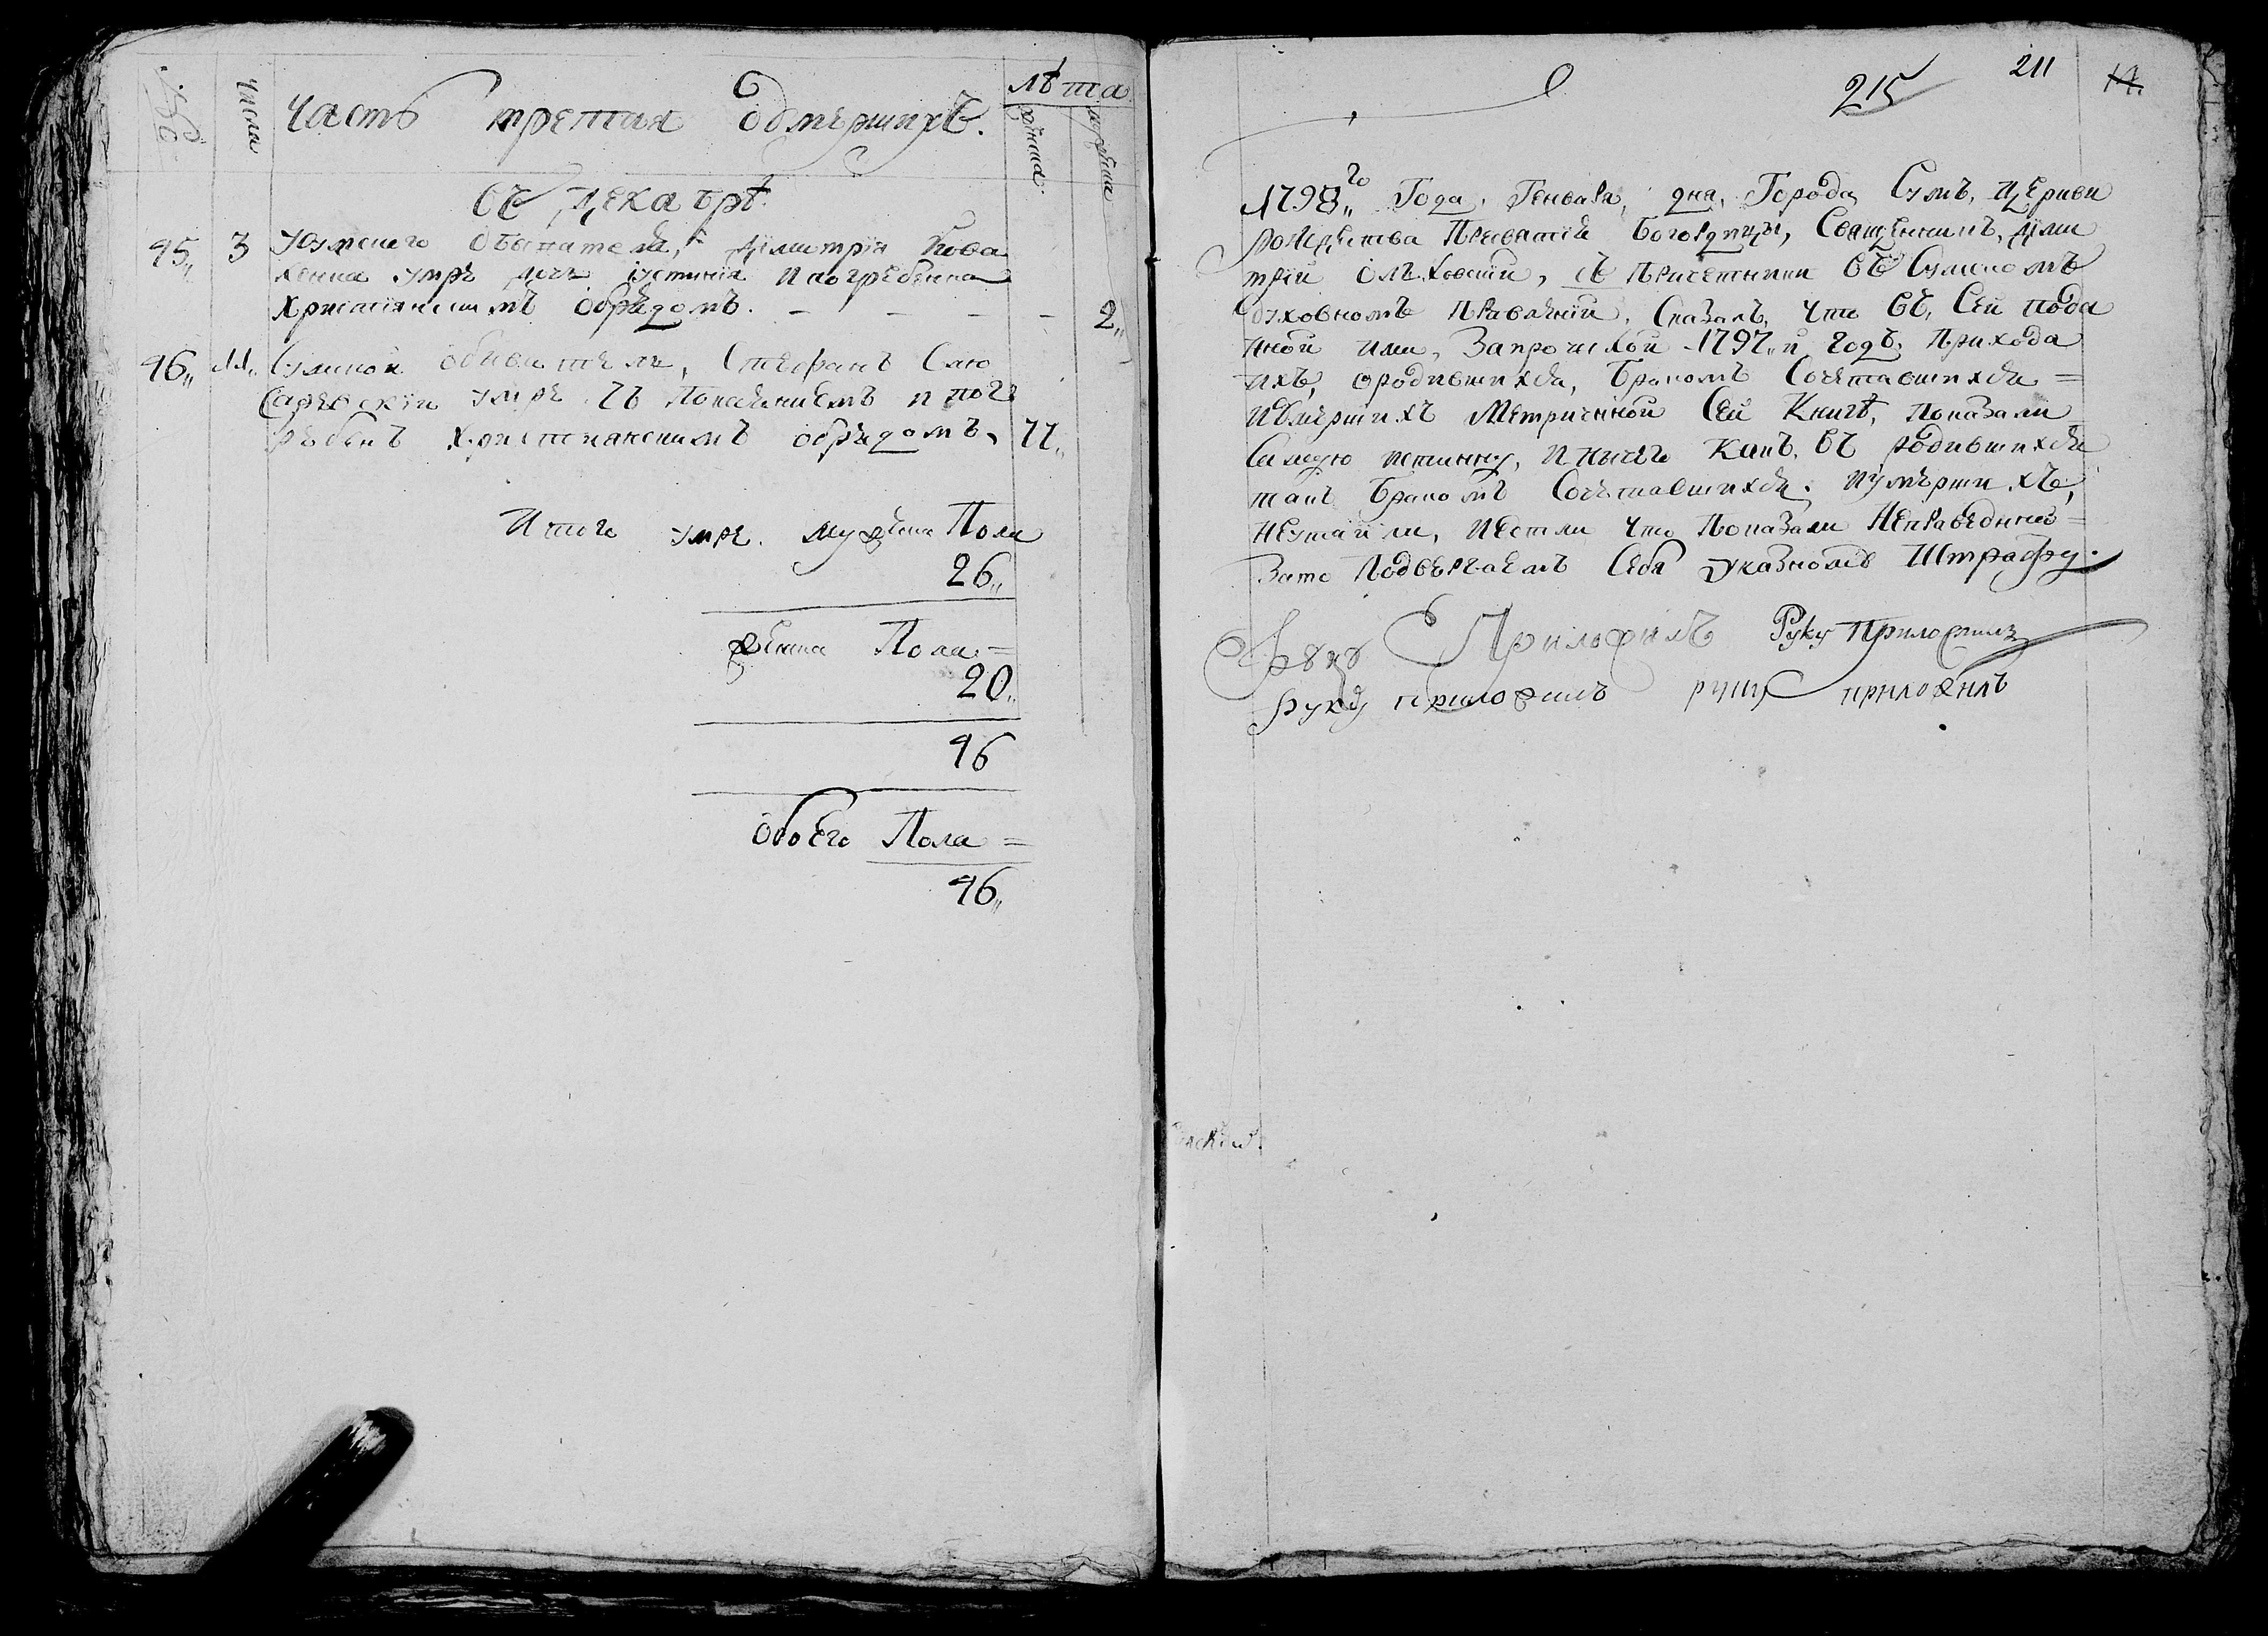 Числа
Часть третия обмершихъ.
лѣта
въ декабрѣ
45,, 3 Сумскаго обывателя, Димитрія Кова
ленка умре дочь Iустинiа и погребенна
христiянскимъ обрядомъ. — — — — 2,,
46,, 11,, Сумской обиватель, Стефанъ
умре съ покаяниемъ и погъ
ребенъ христианскимъ обрядомъ, 77,,
Итого умре. мужеска Пола
26,,
женска Пола =
20,,
46
обоего Пола =
46,,
211
215
1798,, го Года, Генваря, дня, Города Сумъ, церкви
рождества Пресвятiй Богородицы, Священникъ, Дими
трiй Ольховскiй, съ причетники въ Сумскомъ
духовномъ правленiи, сказалъ, что въ, Сей пода
нной ими, Запрошлой 1797,,й годъ, Прихода
ихъ, ородившихся, бракомъ Сочетавшихся =
иумершихъ Метричнной Сей Книгѣ, показали
Самую истинну, и никого какъ, въ родившихся
такъ бракомъ Сочетавшихся. иумершихъ,
неутаили, иестли что показали Неправедние =
Зато Подвергаемъ Себя указному Штрафу.
Руку Приложилъ Руку Приложилъ
руку приложилъ руку приложилъ